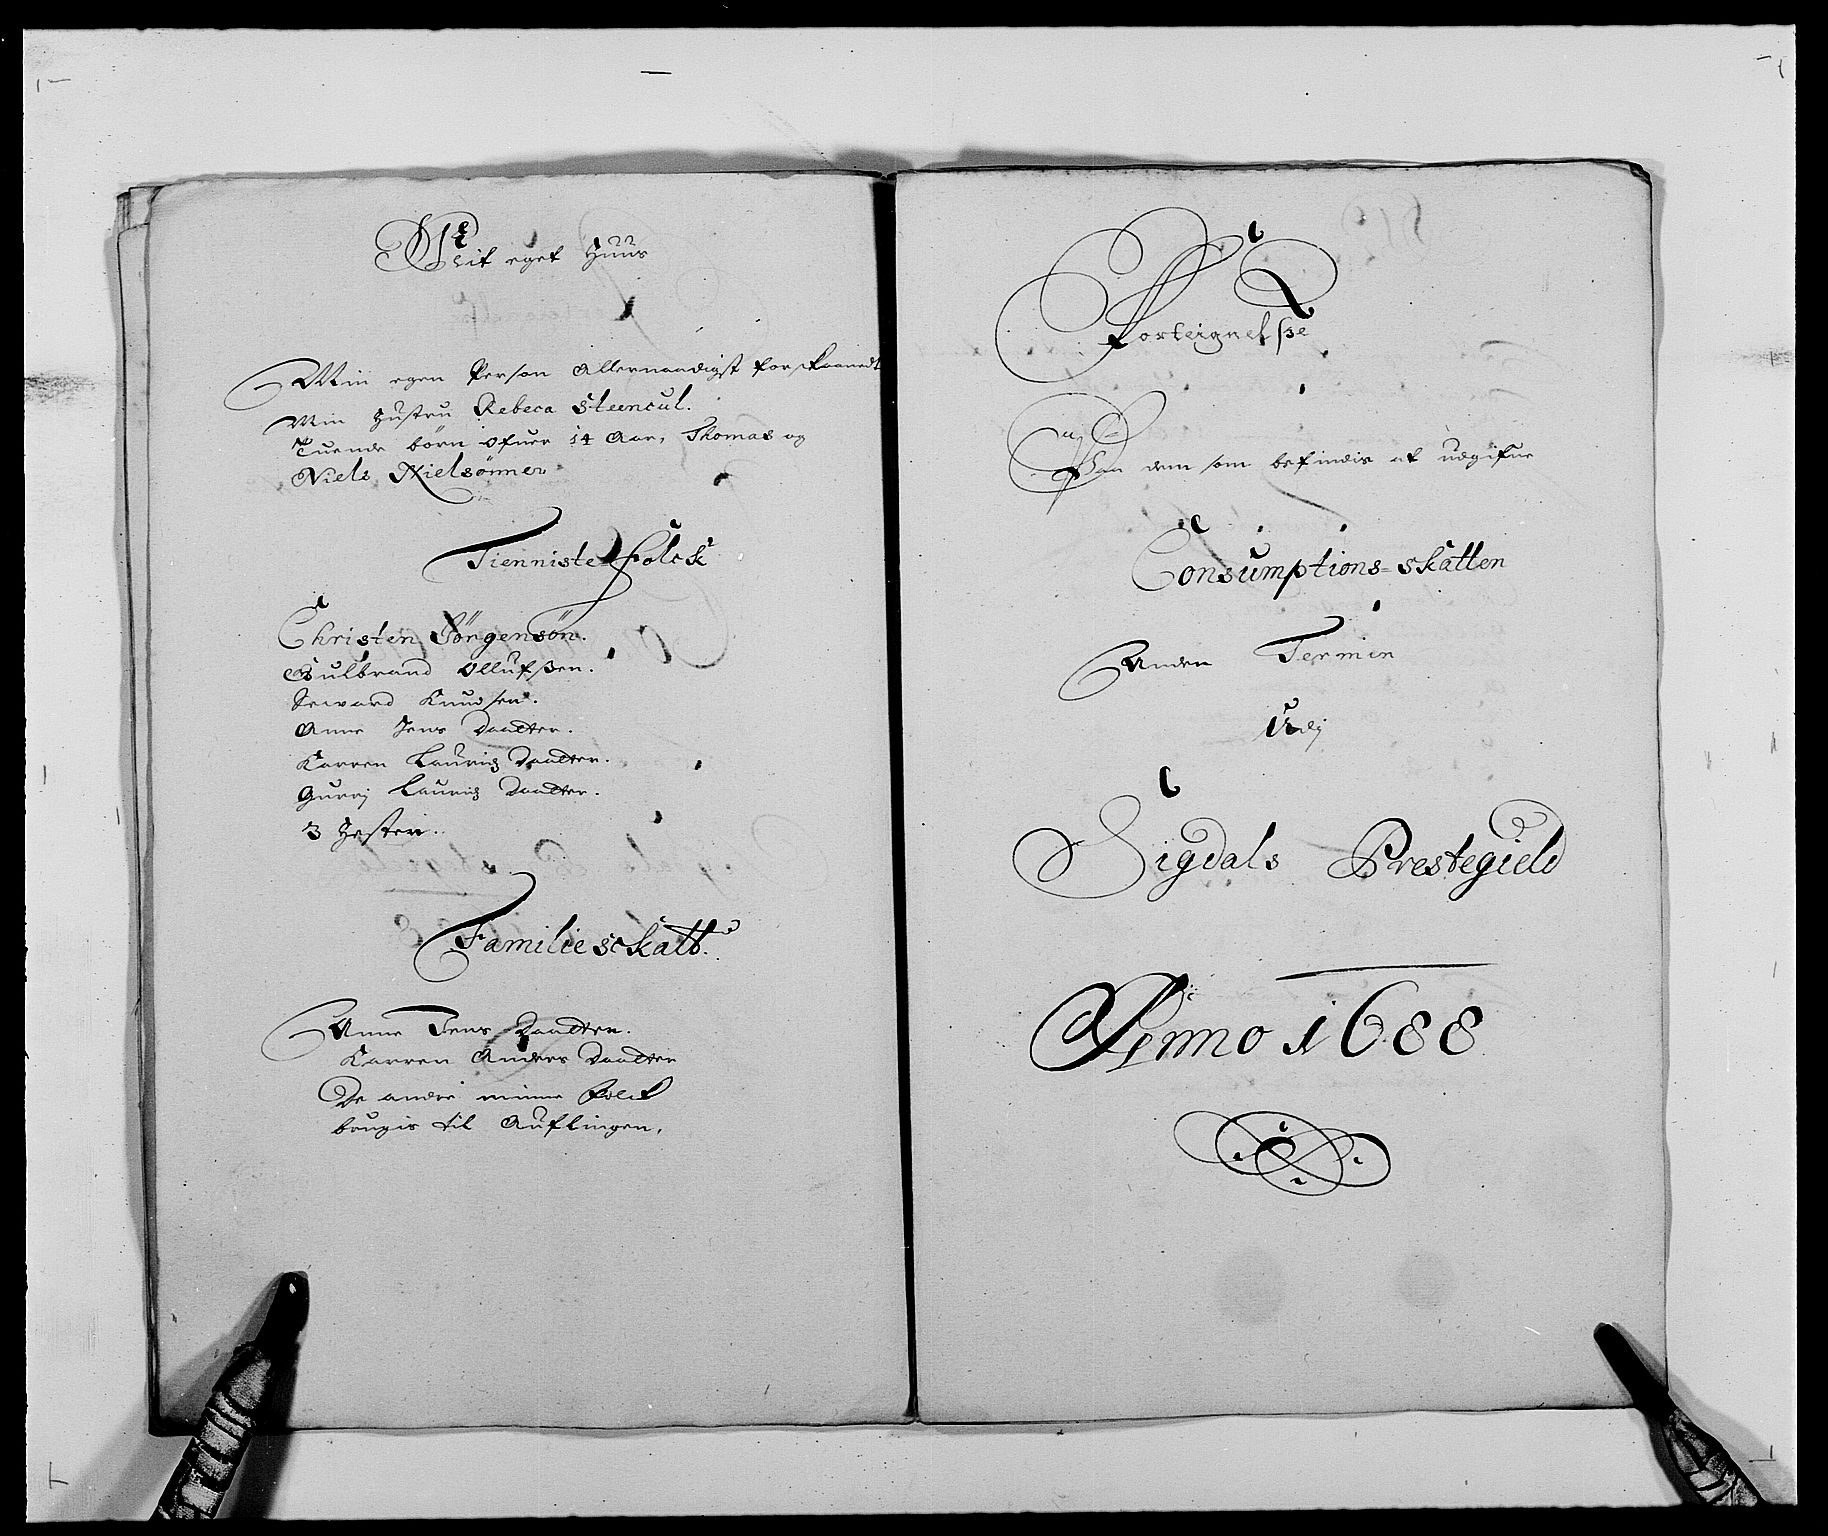 Mit eget Huus
Min egen Person Allernaadigst forskaanedt
Min Hustru Rebeca Steencul.
Tuende börn ofuer 14 Aar, Thomas og
Niels Nielsönner
Tienniste Folck
Christen Jörgensön.
Gulbrand Ollufßen.
Knudsen.
Anne Jens Daatter.
Karren Lauritz Daatter.
Gurrj Lauritz Daatter.
3 Hester.
Familie sckatt.
Anne Jens Daatter.
Karren Anders Daatter
De andre minne Folck
brugis til Auflingen,
Forteignelße
Paa dem som befindis at udgifue
Consumptions-skatten
Anden Termin
Udj
Sigdals Prestegield
Anno 1688